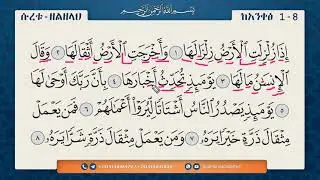 ሱረቱ - ዘልዘላህ
بِسْمِ اللَّهِ الرَّحْمَٰنِ الرَّحِيمِ
ከአንቀፅ 1 - 8
إِذَا زُلْزِلَتِ الْأَرْضُ زِلْزَالَهَا ١ وَأَخْرَجَتِ الْأَرْضُ أَثْقَالَهَا ٢ وَقَالَ
الْإِنسَانُ مَا لَهَا ٣ يَوْمَئِذٍ تُحَدِّثُ أَخْبَارَهَا ٤ بِأَنَّ رَبَّكَ أَوْحَىٰ لَهَا
٥ يَوْمَئِذٍ يَصْدُرُ النَّاسُ أَشْتَاتًا لِّيُرَوْا أَعْمَالَهُمْ ٦ فَمَن يَعْمَلْ
مِثْقَالَ ذَرَّةٍ خَيْرًا يَرَهُ ٧ وَمَن يَعْمَلْ مِثْقَالَ ذَرَّةٍ شَرًّا يَرَهُ ٨